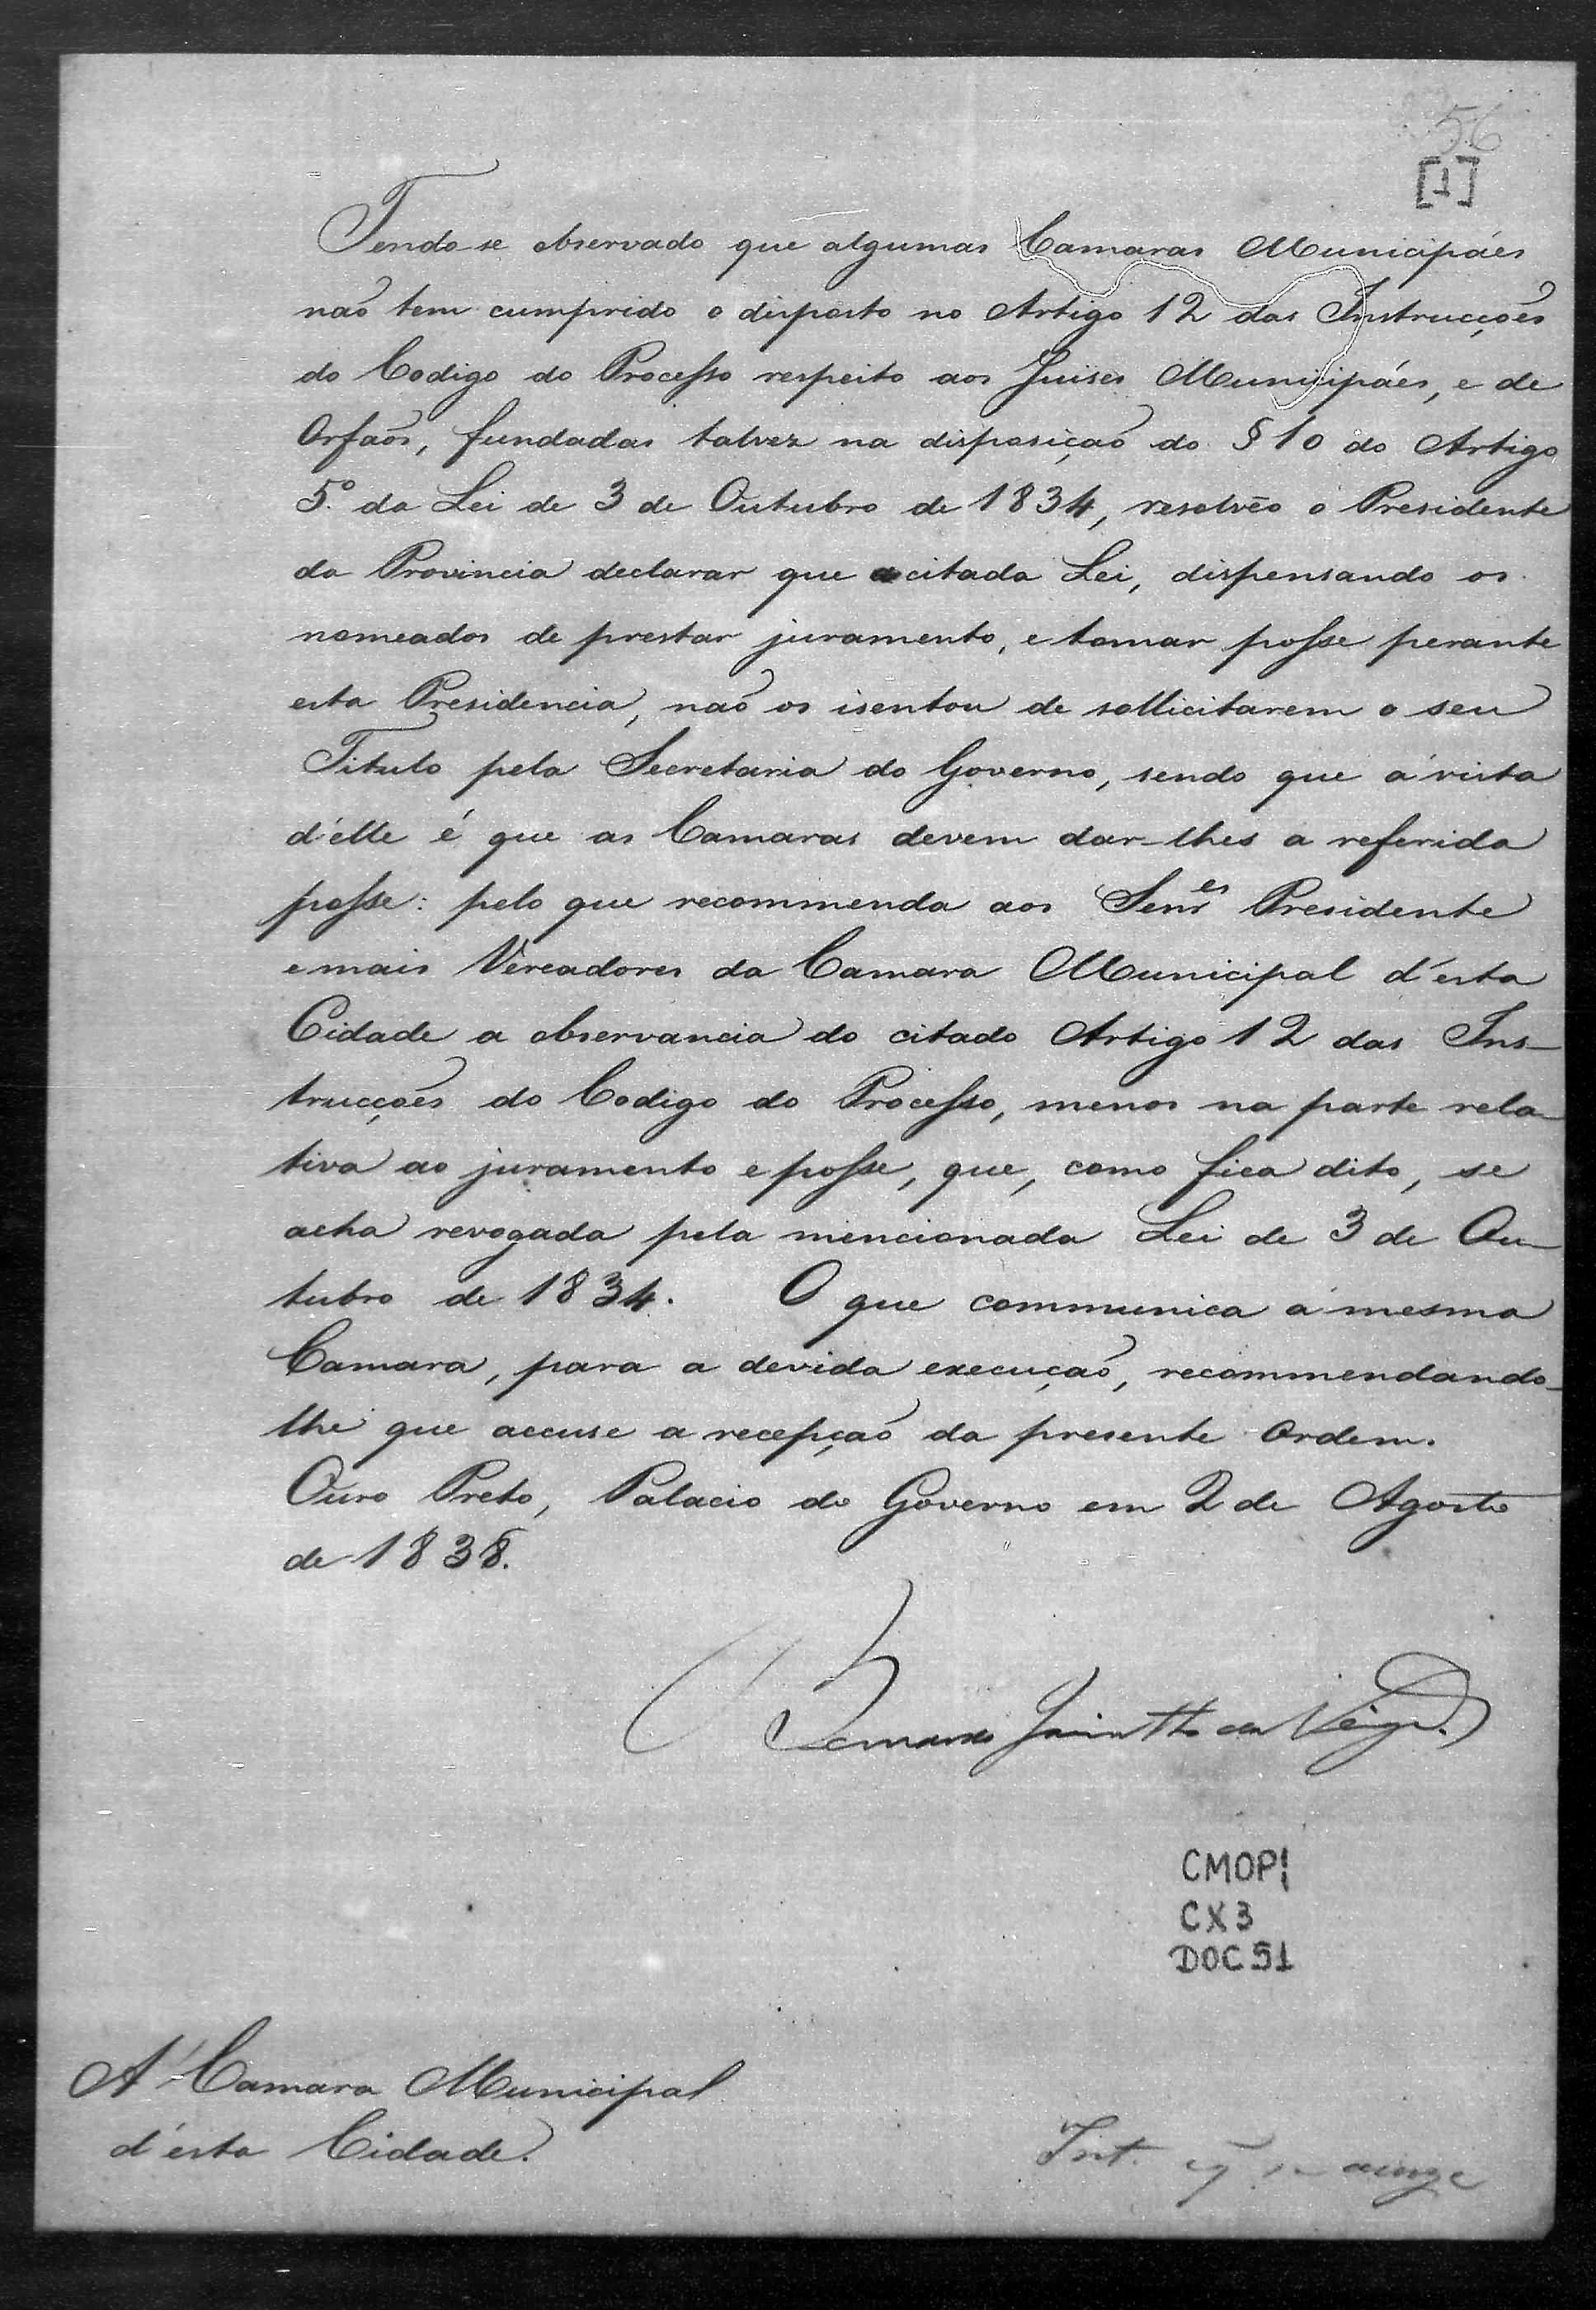 56
[1]
Tendo-se observado que algumas Camaras Municipáes
naõ tem cumprido o disposto no Artigo 12 das Instrucções
do Codigo do Processo respeito aos Juises Municipáes, e de
Orfaõs, fundadas talvez na disposiçaõ do § 10 do Artigo
5.º da Lei de 3 de Outubro de 1834, resolvêo o Presidente
da Provincia declarar que a citada Lei, dispensando os
nomeados de prestar juramento, e tomar posse perante
esta Presidencia, naõ os isentou de sollicitarem o seu
Titulo pela Secretaria do Governo, sendo que á vista
d'elle é que as Camaras devem dar-lhes a referida
posse: pelo que recommenda aos Senres Presidente
e mais Vereadores da Camara Municipal d'esta
Cidade a observancia do citado Artigo 12 das Ins-
trucções do Codigo do Processo, menos na parte rela-
tiva ao juramento e posse, que, como fica dito, se
acha revogada pela mencionada Lei de 3 de Ou-
tubro de 1834. O que communica á mesma
Camara, para a devida execuçaõ, recommendando-
lhe que accuse a recepçaõ da presente Ordem.
Ouro Preto, Palacio do Governo em 2 de Agosto
de 1838.
Bernardo Jacintho da Veiga
CMOP
CX3
DOC 51
A' Camara Municipal
d'esta Cidade.
Int.